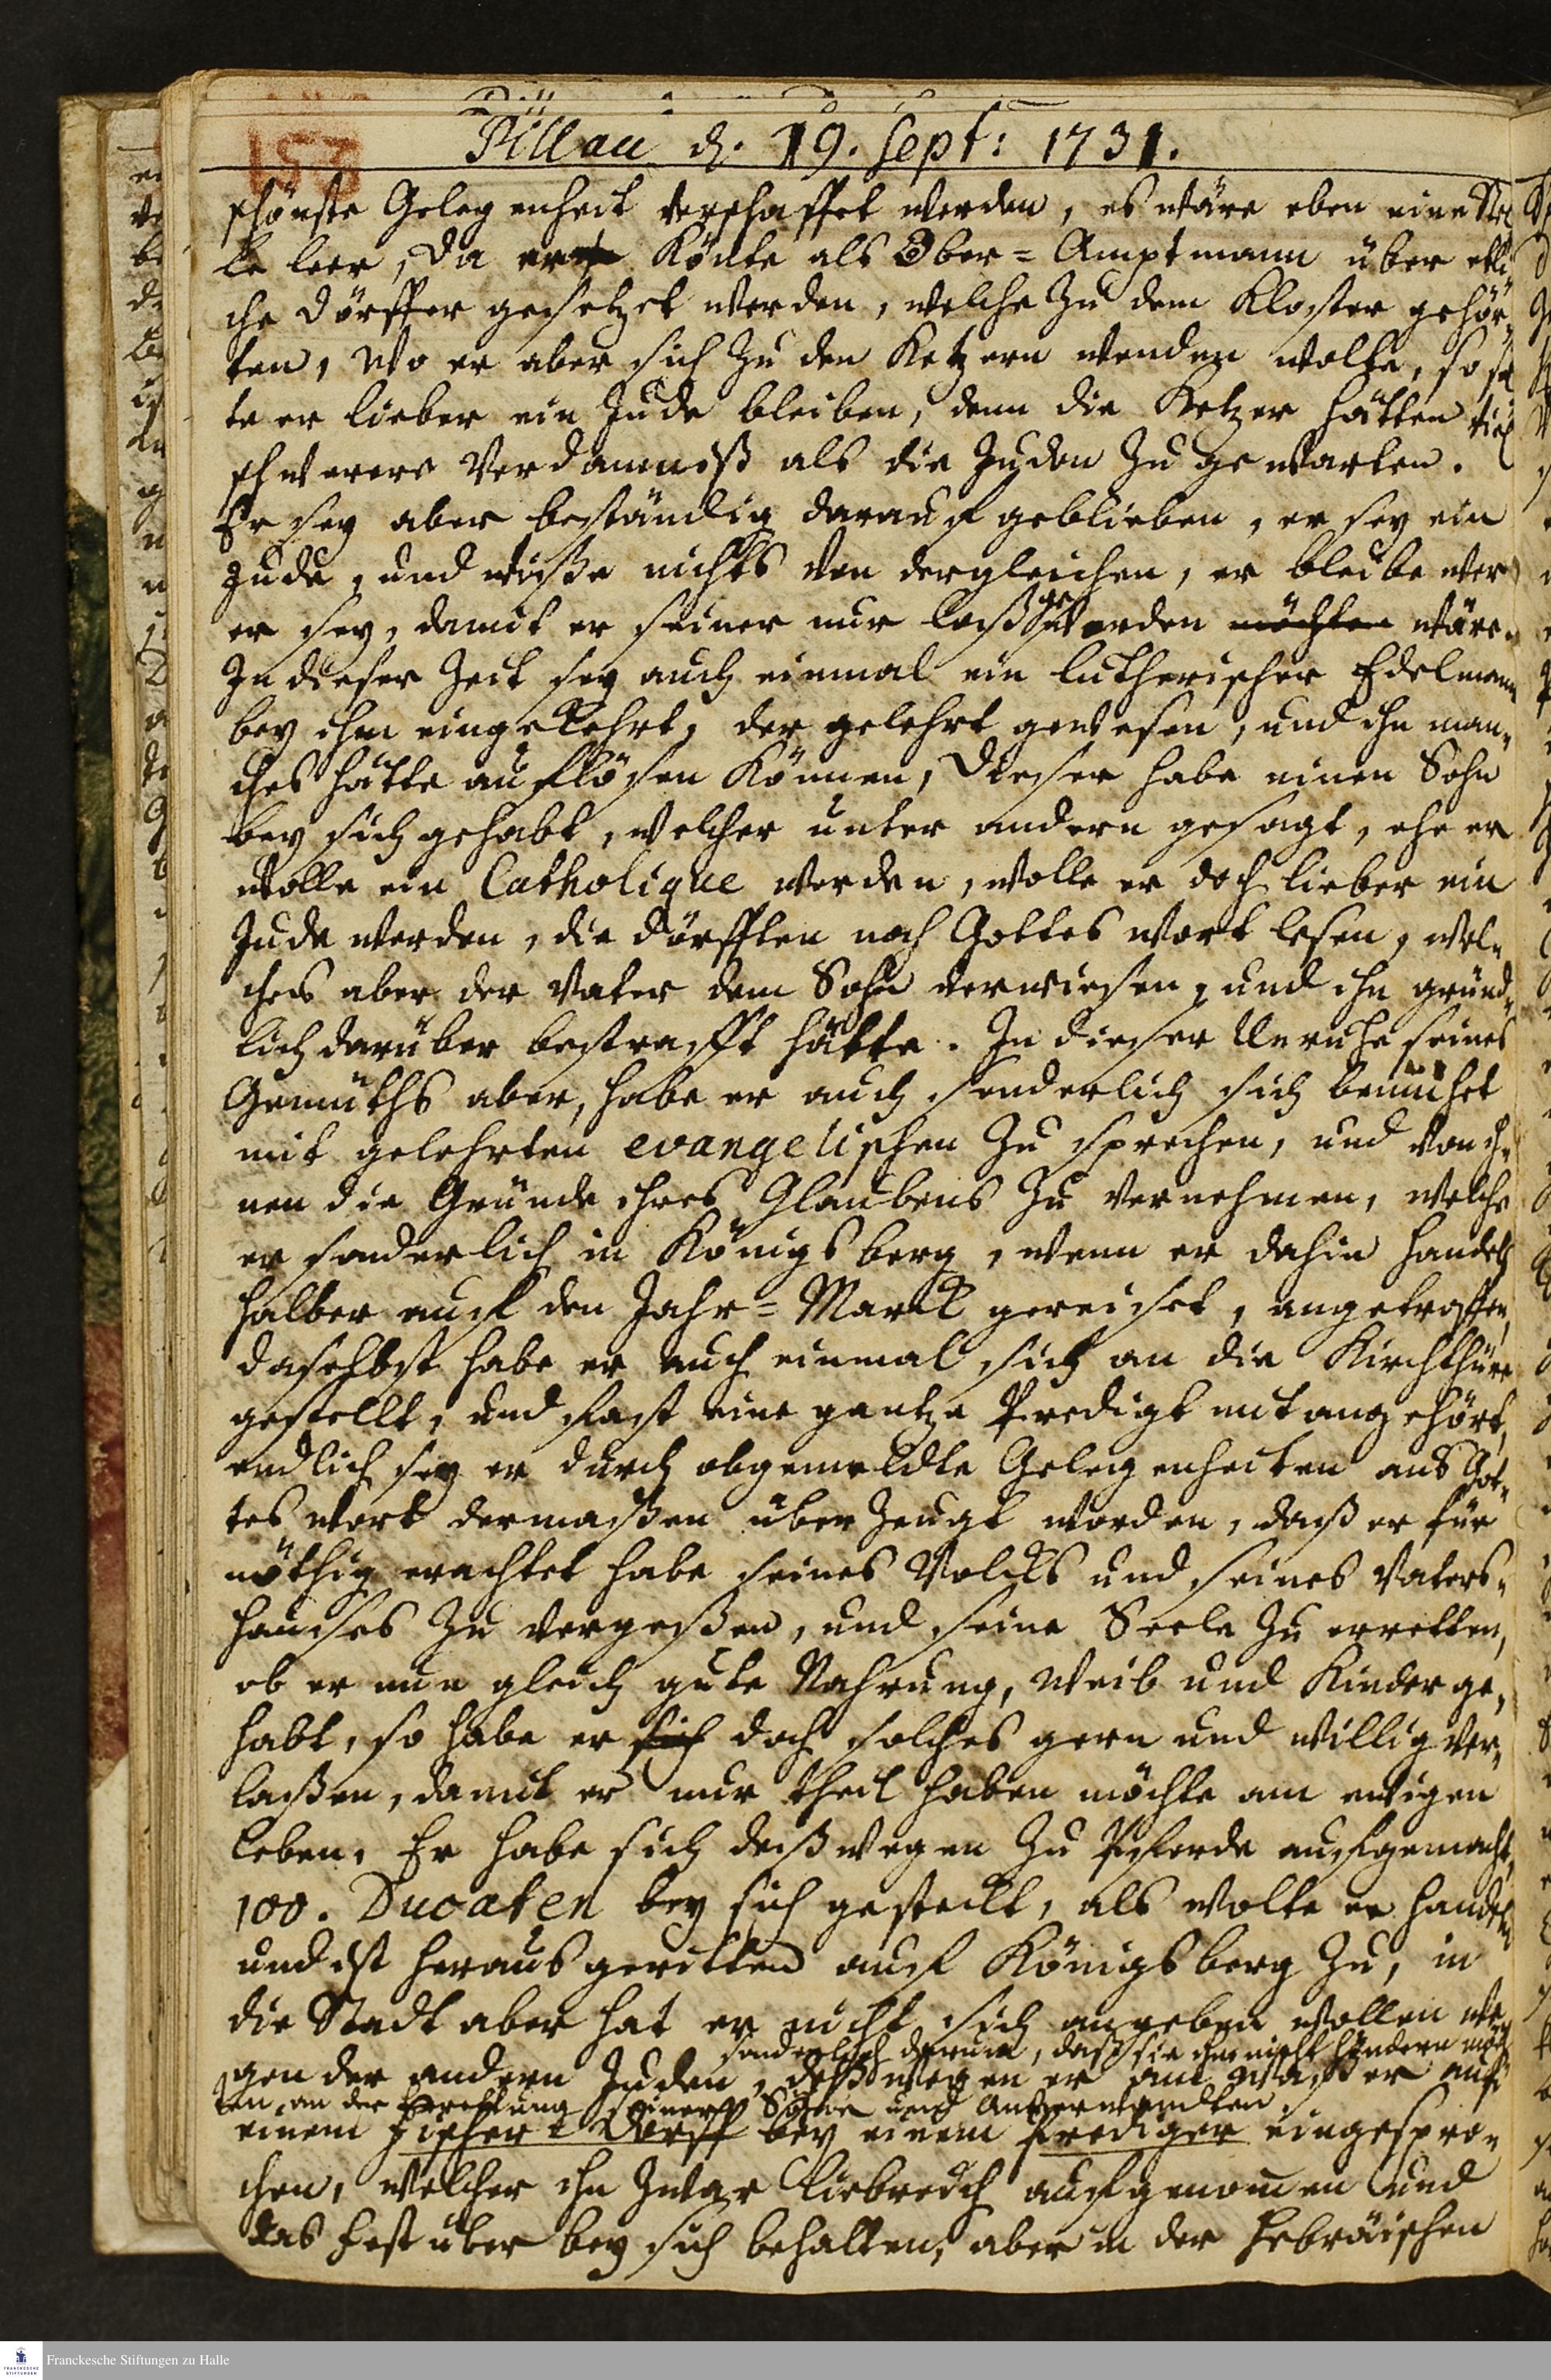 Pillau d. 19. Sept: 1731.
schönste Gelegenheit verschaffet werden, es wäre eben eine Stel
le leer, da er könte als Ober=Amptmann über etli
che Dörffer gesetzet werden, welche zu dem Kloster gehör„
ten, wo er aber sich zu den Ketzern wenden wolte, so sol
te er lieber ein Jude bleiben, denn die Ketzer hätten viel
schwerere Verdamniß als die Juden zu gewarten.
Er sey aber beständig darauf geblieben, er sey ein
Jude, und wüße nichts von dergleichen, er bleibe wer
er sey, damit er seiner nur loß geworden möchten wäre.
In dieser Zeit sey auch einmal ein lutherischer Edelmann
bey ihm eingekehrt, der gelehrt gewesen, und ihn man„
ches hätte auflösen können, dieser habe einen Sohn
bey sich gehabt, welcher unter andern gesagt, ehe er
wolle ein Catholique werden, wolle er doch lieber ein
Jude werden, die dörfften noch Gottes wort lesen, wel„
ches aber der Vater dem Sohn verwiesen, und ihn gründ„
lich darüber bestrafft hätte. In dieser Unruhe seines
Gemüths aber, habe er auch sonderlich sich bemühet
mit gelehrten evangelischen zu sprechen, und von ih„
nen die Gründe ihres Glaubens zu vernehmen, welche
er sonderlich in Königsberg, wenn er dahin handels
halber auf den Jahr=Marck gereiset, angetroffen,
daselbst habe er auch einmal sich an die Kirchthüre
gestellt, und fast eine gantze Predigt mit angehört,
endlich sey er durch obgemeldte Gelegenheiten aus Got„
tes wort dermaßen überzeugt worden, daß er für
nöthig erachtet habe seines Volcks und seines Vaters„
hauses zu vergeßen, und seine Seele zu erretten,
ob er nun gleich gute Nahrung, Weib und Kinder ge„
habt, so habe er sich doch solches gern und willig ver„
laßen, damit er nur theil haben möchte am ewigen
leben. Er habe sich deßwegen zu Pferde aufgemacht,
100. Ducaten bey sich gesteckt, als wolte er handeln
und ist heraus geritten auf Königsberg zu, in
die Stadt aber hat er nicht sich angeben wollen we„
sonderlich darum, daß sie ihn nicht hindern möch
gen der andern Juden, deßwegen er am Waßer auf
ten an der Errettung seiner Söhne und Anverwandten.
einem Fischer=Dorff bey einem Prediger eingespro„
chen, welcher ihn zwar liebreich aufgenomen und
das Fest über bey sich behalten, aber in der Hebräischen
Franckesche Stiftungen zu Halle